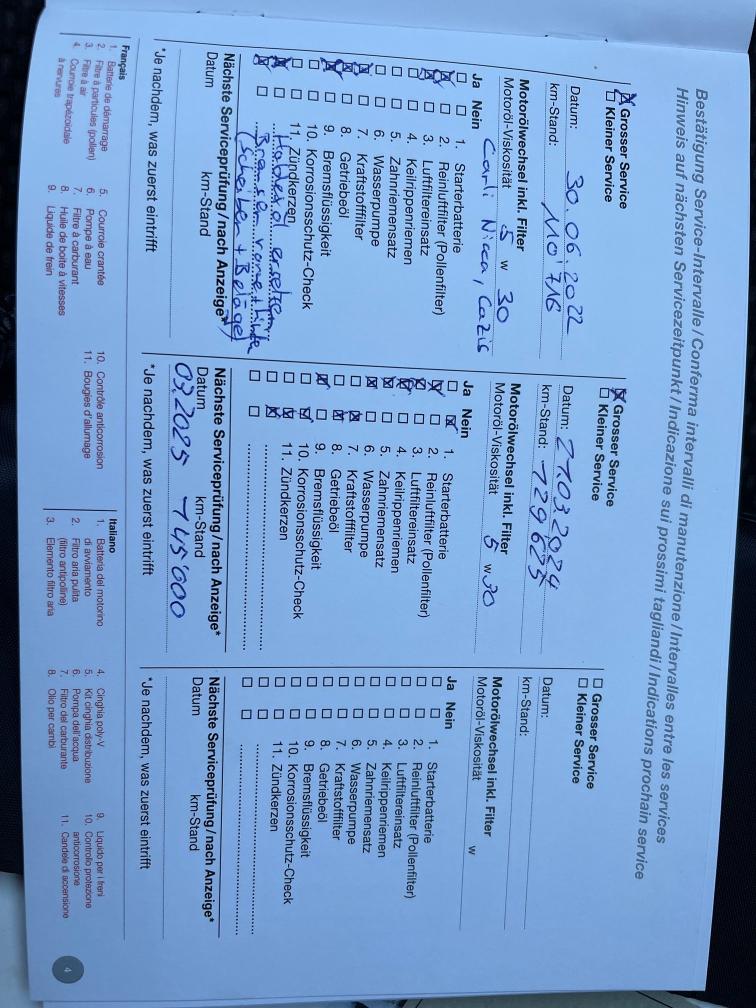 Bestätigung Service-Intervalle / Conferma intervalli di manutenzione / Intervalles entre les services
Hinweis auf nächsten Servicezeitpunkt / Indicazione sui prossimi tagliandi / Indications prochain service
☒ Grosser Service
☐ Kleiner Service
Datum: 30.06.2022
km-Stand: 110'716
Motorölwechsel inkl. Filter
Motoröl-Viskosität 5 w 30
Carli Nicca, Cazis
Ja Nein
1. Starterbatterie
2. Reinluftfilter (Pollenfilter)
3. Luftfiltereinsatz
4. Keilrippenriemen
5. Zahnriemensatz
6. Wasserpumpe
7. Kraftstofffilter
8. Getriebeöl
9. Bremsflüssigkeit
10. Korrosionsschutz-Check
11. Zündkerzen
Haldexöl ersetzen
Bremsen vorne + hinten
(Scheiben + Beläge)
Nächste Serviceprüfung / nach Anzeige*
Datum km-Stand
*Je nachdem, was zuerst eintrifft
☒ Grosser Service
☐ Kleiner Service
Datum: 21.03.2024
km-Stand: 129625
Motorölwechsel inkl. Filter
Motoröl-Viskosität 5 w 30
Ja Nein
1. Starterbatterie
2. Reinluftfilter (Pollenfilter)
3. Luftfiltereinsatz
4. Keilrippenriemen
5. Zahnriemensatz
6. Wasserpumpe
7. Kraftstofffilter
8. Getriebeöl
9. Bremsflüssigkeit
10. Korrosionsschutz-Check
11. Zündkerzen
Nächste Serviceprüfung / nach Anzeige*
Datum km-Stand
03.2025 145'000
*Je nachdem, was zuerst eintrifft
☐ Grosser Service
☐ Kleiner Service
Datum:
km-Stand:
Motorölwechsel inkl. Filter
Motoröl-Viskosität w
Ja Nein
1. Starterbatterie
2. Reinluftfilter (Pollenfilter)
3. Luftfiltereinsatz
4. Keilrippenriemen
5. Zahnriemensatz
6. Wasserpumpe
7. Kraftstofffilter
8. Getriebeöl
9. Bremsflüssigkeit
10. Korrosionsschutz-Check
11. Zündkerzen
Nächste Serviceprüfung / nach Anzeige*
Datum km-Stand
*Je nachdem, was zuerst eintrifft
Français
1. Batterie de démarrage
2. Filtre à particules (pollen)
3. Filtre à air
4. Courroie trapézoïdale
à nervures
5. Courroie crantée
6. Pompe à eau
7. Filtre à carburant
8. Huile de boîte à vitesses
9. Liquide de frein
10. Contrôle anticorrosion
11. Bougies d'allumage
Italiano
1. Batteria del motorino
di avviamento
2. Filtro aria pulita
(filtro antipolline)
3. Elemento filtro aria
4. Cinghia poly-V
5. Kit cinghia distribuzione
6. Pompa dell'acqua
7. Filtro del carburante
8. Olio per cambi
9. Liquido per i freni
10. Controllo protezione
anticorrosione
11. Candele di accensione
4